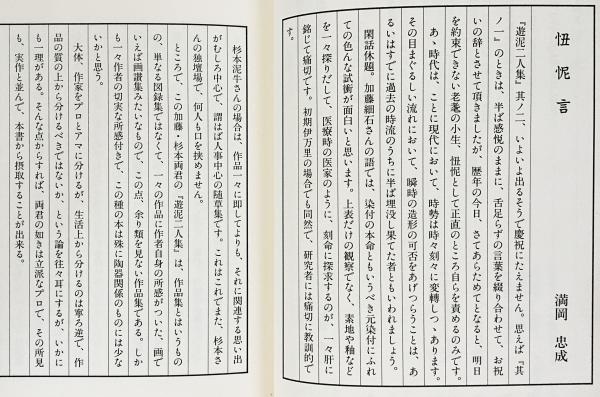 忸怩言
満岡忠成
『遊泥二人集』其ノ二、いよいよ出るそうで慶祝にたえません。思えば『其
ノ一』のときは、半ば感悦のままに、舌足らずの言葉を綴り合わせて、お祝
いの辞とさせて頂きましたが、歴年の今日、さてあらためてとなると、明日
を約束できない老耄の小生、忸怩として正直のところ自らを責めるのみです。
あゝ時代は、ことに現代において、時勢は時々刻々に変轉しつゝあります。
その目まぐるしい流れにおいて、瞬時の造形の可否をあげつらうことは、あ
るいはすでに過去の時流のうちに半ば埋没し果てた者ともいわれましょう。
閑話休題。加藤細石さんの語では、染付の本命ともいうべき元染付にふれ
ての色んな試衝が面白いと思います。上表だけの観察でなく、素地や釉など
を一々探りだして、医療時の医家のように、刻命に探求するのが、一々肝に
銘じて痛切です。初期伊万里の場合でも同然で、研究者には痛切に教訓的で
す。
杉本泥牛さんの場合は、作品一々に即してよりも、それに関連する思い出
がむしろ中心で、謂はば人事中心の随草集です。これはこれでまた、杉本さ
んの独壇場で、何人も口を挟めません。
ところで、この加藤・杉本両君の『遊泥二人集』は、作品集とはいうもの
の、単なる図録集ではなくて、一々の作品に作者自身の所感がついた、画で
いえば画讃集みたいなもので、この点、余り類を見ない作品集である。しか
も一々作者の切実な所感付きで、この種の本は殊に陶器関係のものには少な
いかと思う。
大体、作家をプロとアマに分けるが、生活上から分けるのは寧ろ逆で、作
品の質の上から分けるべきではないか、という論を往々耳にするが、いかに
も一理がある。そんな点からすれば、両君の如きは立派なプロで、その所見
も、実作と並んで、本書から摂取することが出来る。